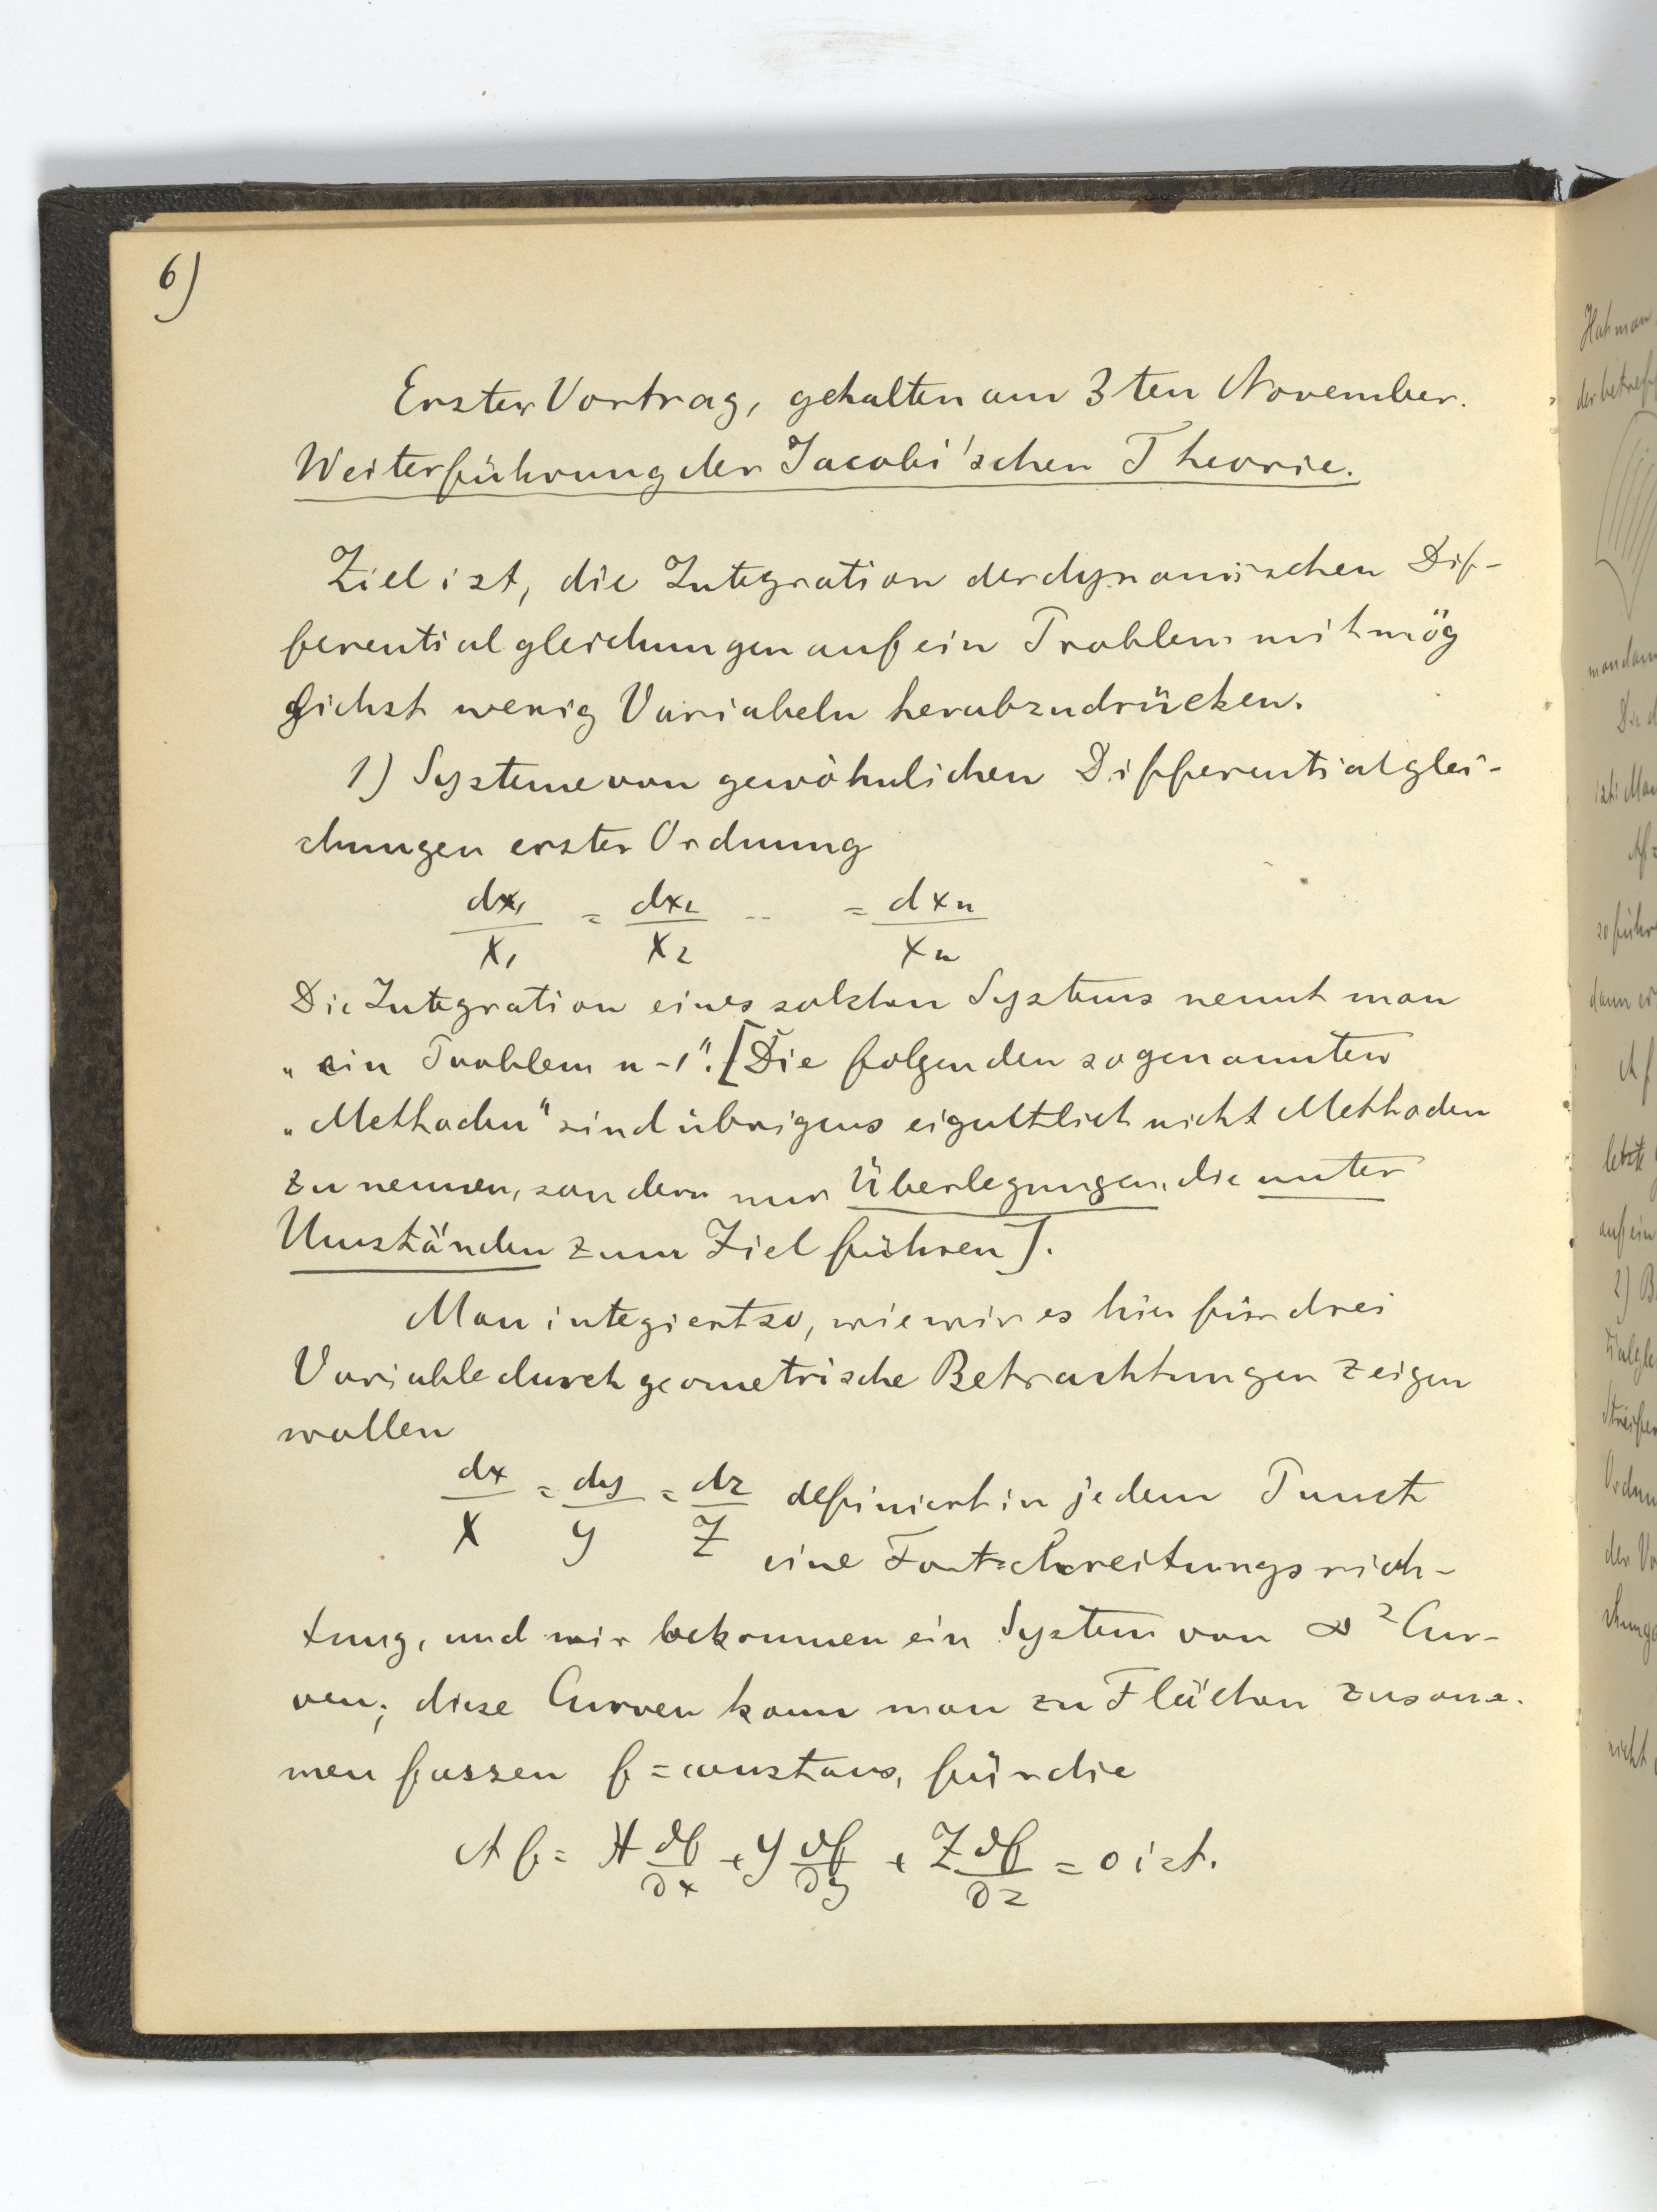 6)
Erster Vortrag, gehalten am 3ten November.
Weiterführung der Jacobi'schen Theorie.
Ziel ist, die Integration der dynamischen Dif-
ferentialgleichungen auf ein Problem mit mög
lichst wenig Variabeln herabzudrücken.
1) Systeme von gewöhnlichen Differentialglei-
chungen erster Ordnung
dx₁/X₁ = dx₂/X₂ -- = dxn/Xn
Die Integration eines solchen Systems nennt man
„ein Problem n-1". [Die folgenden sogenannten
„Methoden" sind übrigens eigentlich nicht Methoden
zu nennen, sondern nur Überlegungen, die unter
Umständen zum Ziel führen].
Man integiert so, wie wir es hier für drei
Variable durch geometrische Betrachtungen zeigen
wollen
dx/X = dy/Y = dz/Z definiert in jedem Punct
eine Fortschreitungsrich-
tung, und wir bekommen ein System von ∞² Cur-
ven; diese Curven kann man zu Flächen zusam-
men fassen f = constans, für die
Af = X ∂f/∂x + Y ∂f/∂y + Z ∂f/∂z = 0 ist.
Hat man
der betreff
man dann
Die d
ist: Man
Af =
so führ
dann er
Af
letzte
auf ein
2) B
tialgle
Streifen
Ordnun
der Vo
chung
nicht